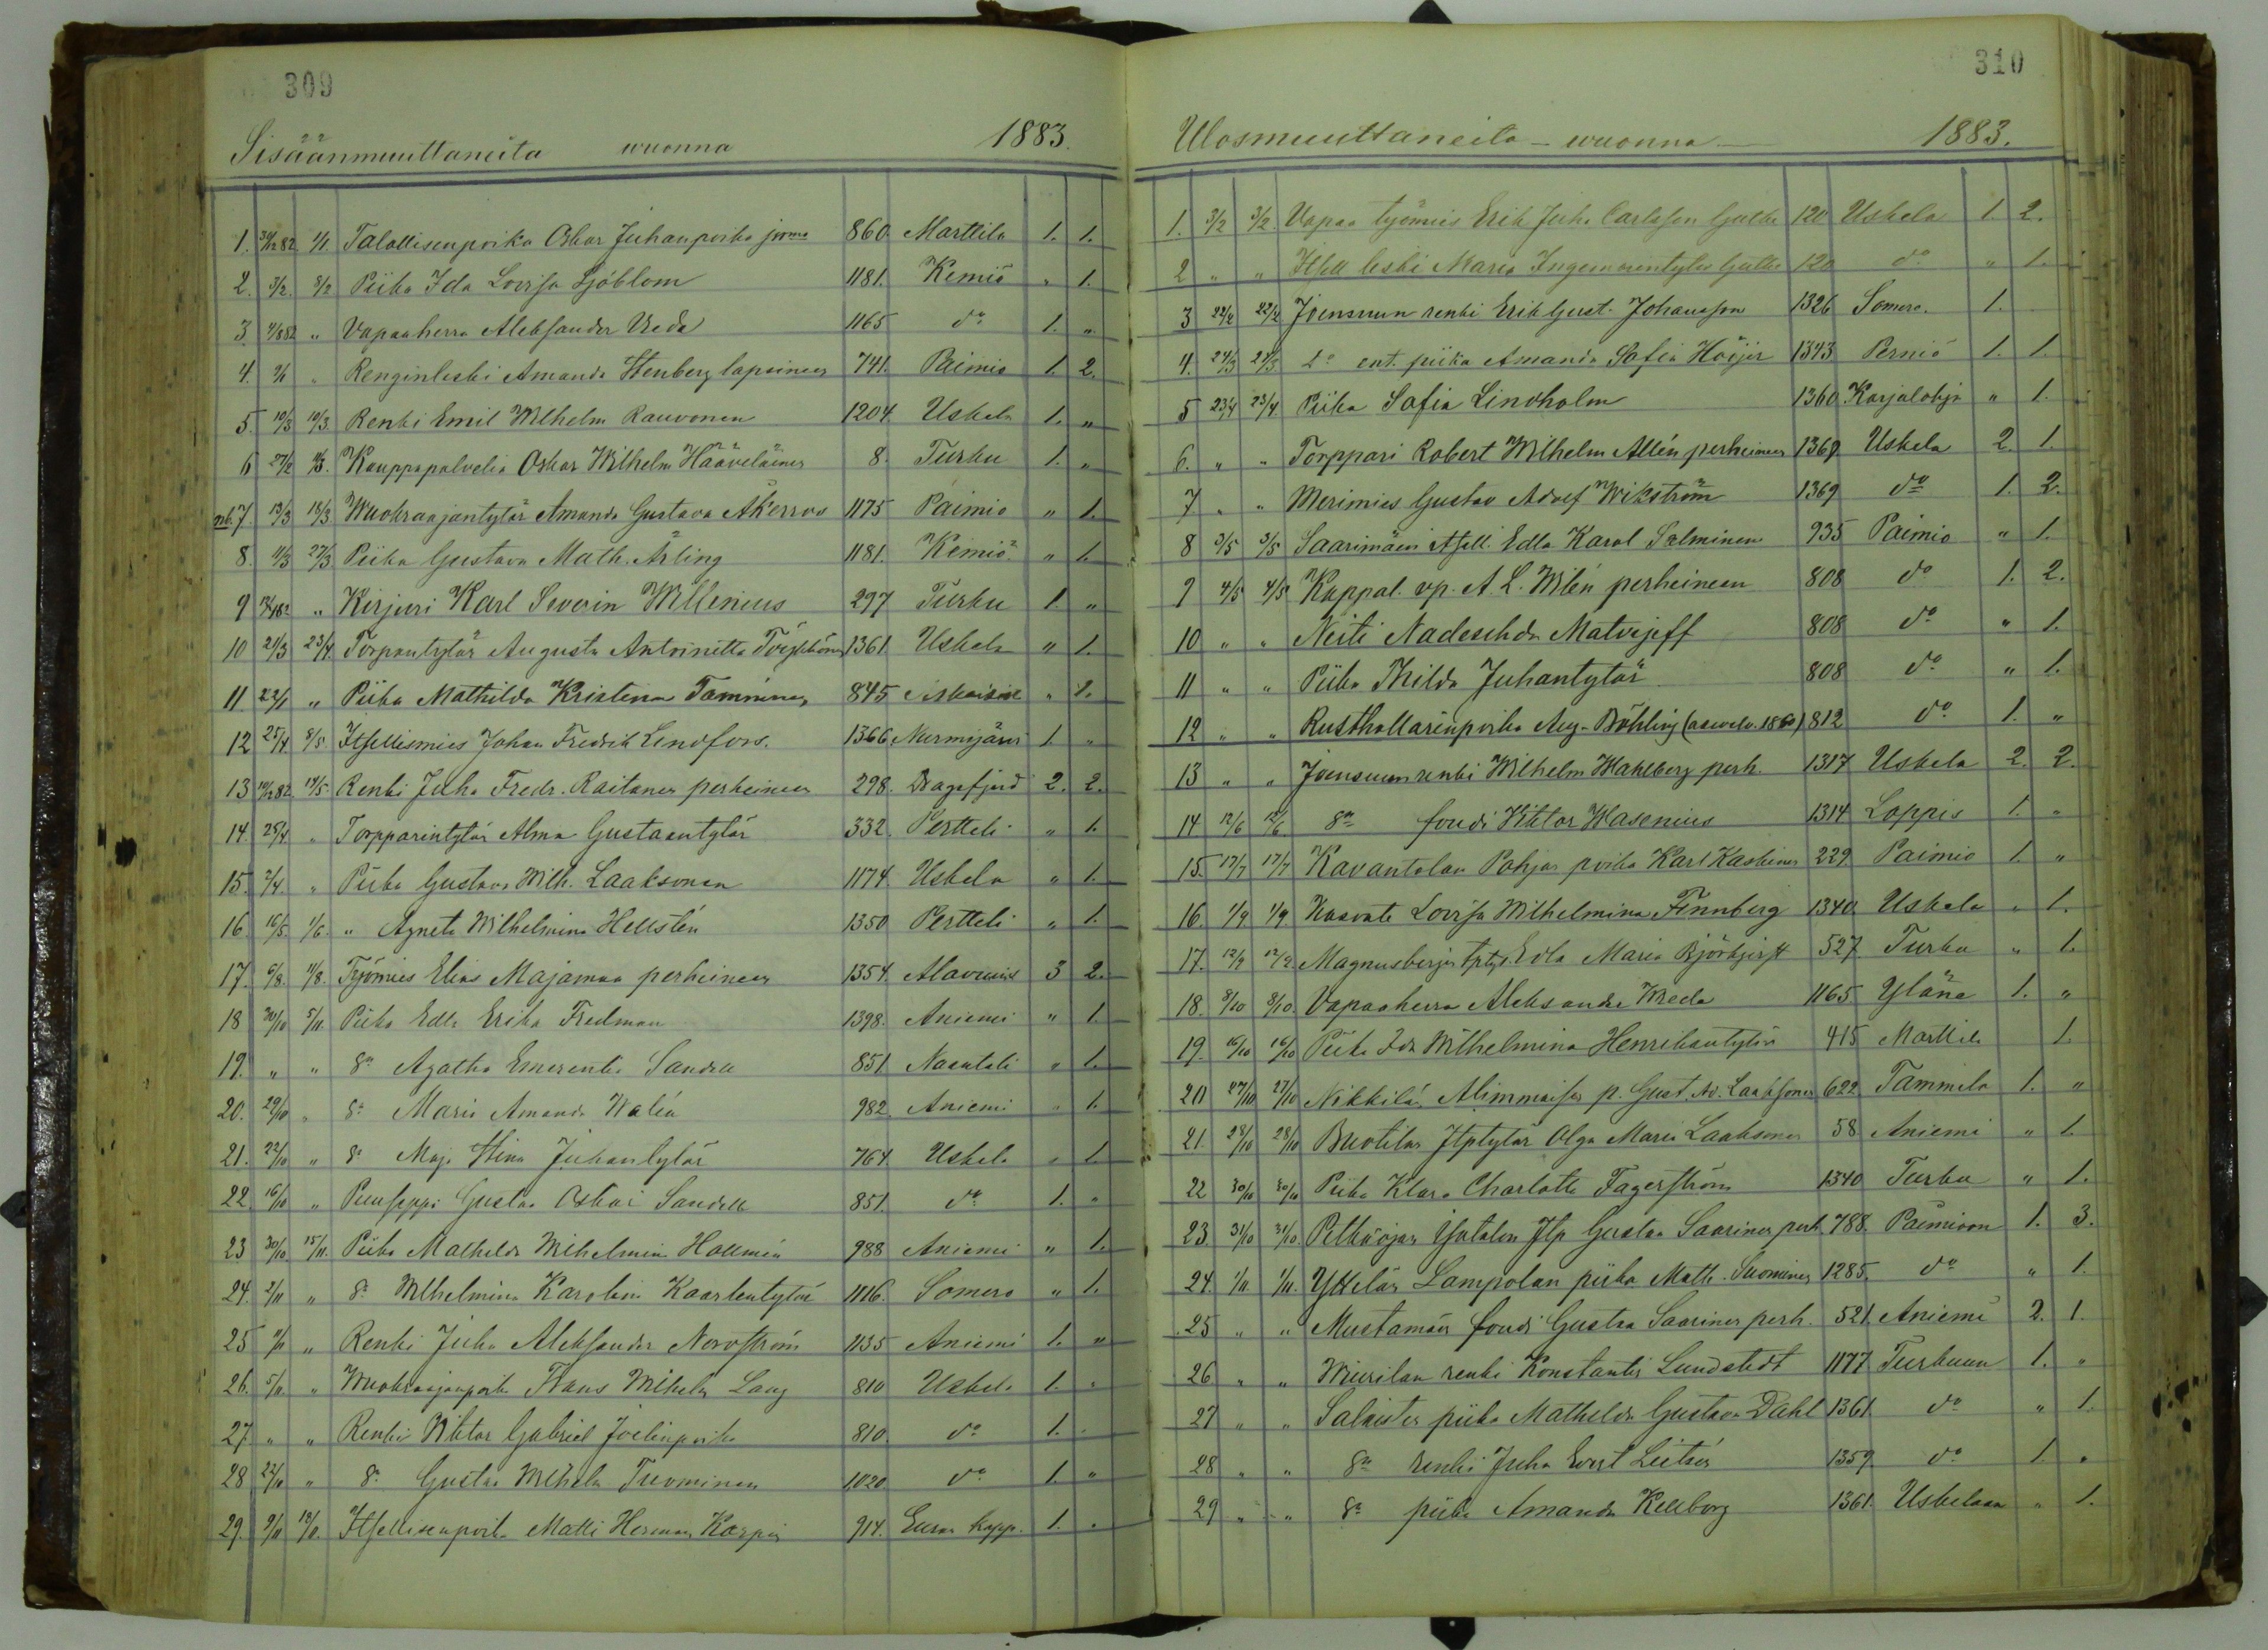 309
Sisäänmuuttaneita wuonna 1883.
1. 30/12 82 1/1. Talollisenpoika Oskar Juhanpoika 860 Marttila 1. 1.
2. 3/2. 8/2 Piika Ida Lovisa Sjöblom 1181. Kemiö " 1.
3. " Vapaaherra Aleksander Wreda 1165 do 1. "
4. " Renginleski Amanda Stenberg lapsineen 741. Paimio 1. 2.
5. 10/3 10/3. Renki Emil Wilhelm Rauvonen 1204. Uskela 1. "
6 27/2 Kauppapalvelia Oskar Wilhelm Hääveläinen 8. Turku 1. "
nb. 7. 13/3 18/3 Wuokraajantytär Amanda Gustava Åkerroos 1175 Paimio " 1.
8. 11/3 27/3 Piika Gustava Math. Ärling 1181. Kemiö " 1.
9 " Kirjuri Karl Severin Willenius 297 Turku 1. "
10 21/3 23/4. Torpantytär Augusta Antoinetta 1361. Uskela " 1.
11. 22/1 " Piika Mathilda Kristina Tamminen 845 " 1.
12 25/4. 8/5 Itsellismies Johan Fredrik Lindfors. 1366 Nurmijärvi 1. "
13 14/5. Renki Juha Fredr. Raitanen perheineen 298. Dragsfjerd 2. 2.
14. 25/4. " Torpparintytär Alma Gustaantytär 332. Pertteli " 1.
15. 2/4. " Piika Gustava Wilh. Laaksonen 1174. Uskela " 1.
16. 16/5 1/6. " Agneta Wilhelmina Hellstén 1350 Pertteli " 1.
17. 6/8. 11/8. Työmies Elias Majamaa perheineen 1354. Alavuus 3 2.
18 30/10 5/11. Piika Edla Erika Fredman 1398. Aniemi " 1.
19. " " do Agatha Emerentia Sandell 851. Naantali " 1.
20. 29/10 " do Maria Amanda Walén 982. Aniemi " 1.
21. 22/10 " do Maja Stina Juhantytär 764. Uskela " 1.
22. 16/10 " Puuseppä Gustaa Oskar Sandell 851. do 1. "
23 30/10. 15/11. Piika Mathilda Wilhelmina Hallmén 988 Aniemi " 1.
24. 2/11 " do Wilhelmina Karolina Kaarlentytär 1116. Somero " 1.
25 " Renki Juha Aleksander Nordström 1135 Aniemi 1. "
26. 5/11 " Wuokraajanpoika Frans Wilhelm Lang 810 Uskela 1. "
27. " " Renki Wiktor Gabriel Joelinpoika 810. do 1. "
28 22/10 " do Gustaa Wilhelm Tuominen 1020. do 1. "
29. 9/11 Itsellisenpoika Matti Herman 914. Euran kapp. 1. "
310
Ulosmuuttaneita wuonna 1883.
1. 3/2 3/2. Vapaa työmies Erik Juha Carlsson 120 Uskela 1. 2.
2 " " Itsell. leski Maria Ingemarintytär 120 do " 1.
3 22/2 22/2 Joensuun renki Erik Gust. Johansson 1326 Somero. 1.
4. 24/3 24/3 do ent. piika Amanda Sofia Höijer 1343 Perniö 1. 1.
5 23/4 23/4 Piika Sofia Lindholm 1360 Karjalohja " 1.
6. " " Torppari Robert Wilhelm Allén perheineen 1369 Uskela 2. 1.
7 " " Merimies Gustav Adolf Wikström 1369 do 1. 2.
8 3/5 3/5 Saarimäen itsell. Edla Karol Salminen 935 Paimio " 1.
9 4/5 4/5 Kappal. vp. A. L. Wilén perheineen 808 do 1. 2.
10 " " Neiti Nadeschda Matvejeff 808 do " 1.
11 " " Piika Hilda Juhantytär 808 do " 1.
12 " " Rusthollarinpoika Aug. Böhling (asevelv. 1860) 812 do 1. "
13 " " Joensuun renki Wilhelm Wahlberg perh. 1317 Uskela 2. 2.
14 12/6 12/6 do foudi Viktor Wasenius 1314 Loppis 1. "
15. 17/7 17/7 Kavantolan Pohjan poika Karl Koskinen 229. Paimio 1. "
16. 1/9 1/9 Kasvate Lovisa Wilhelmina Finnberg 1340 Uskela " 1.
17. 12/9 12/9. Magnusberjin Edla Maria 527. Turku " 1.
18. 8/10 8/10. Vapaaherra Aleksander Wreda 1165 Yläne 1. "
19. 16/10 16/10 Piika Ida Wilhelmina Henrikantytär 415 Marttila 1.
20 27/10 27/10 Nikkilä Alimmaisen p. Gust. Ad. Laaksonen 622. Tammela 1. "
21. 28/10 28/10 Buotilan Olga Maria Laaksonen 58 Aniemi " 1.
22 30/10 30/10 Piika Klara Charlotta Fagerström 1340 Turku " 1.
23. 31/10 31/10. Gustaa Saarinen perh. 788. Paimioon 1. 3.
24. 1/11. 1/11. Yttelän Lampolan piika Math. Suominen 1285. do " 1.
25 " " Mustamäen foudi Gustaa Saarinen perh. 521. Aniemi 2. 1.
26 " " Wiurilan renki Konstantin Lundstedt 1177 Turkuun 1. "
27 " " Salaisten piika Mathilda Gustava Dahl 1361. do " 1.
28 " " do renki Juha Evert 1359 do 1. "
29 " " do piika Amanda Kellborg 1361. Uskelaan " 1.